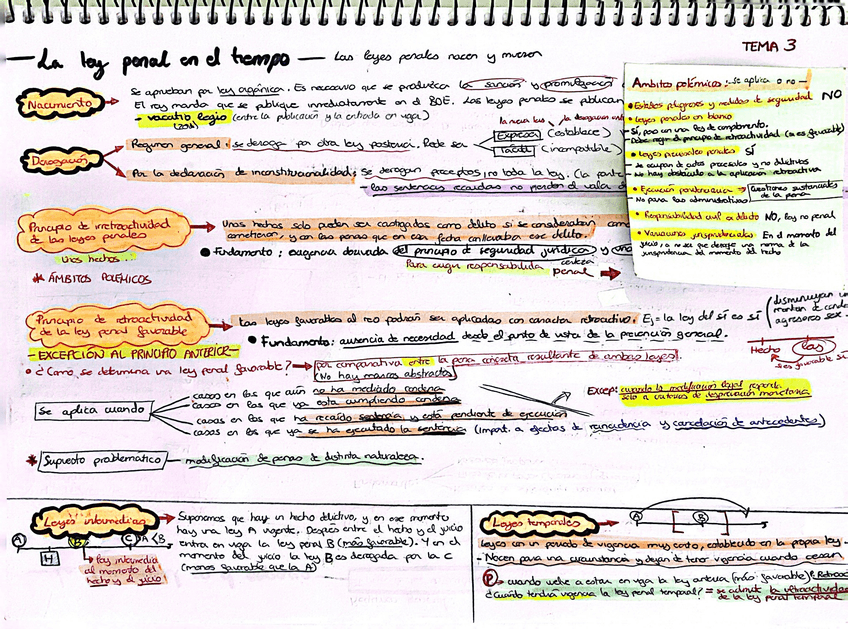 TEMA 3
La ley penal en el tiempo — Las leyes penales nacen y mueren
Nacimiento
Se aprueban por ley orgánica. Es necesario que se produzca la sanción y promulgación
El rey manda que se publique inmediatamente en el BOE. Las leyes penales se publican
- vacatio legis (entre la publicación y la entrada en vigor)
(20d)
Derogación
Regimen general: se deroga por otra ley posterior. Puede ser
Expresa (establece)
Tácita (incompatible)
Por la declaración de inconstitucionalidad: se derogan preceptos, no toda la ley. (la parte
- las sentencias recaídas no pierden el valor d
Ámbitos polémicos: se aplica o no -
• Estados peligrosos y medidas de seguridad NO
• Leyes penales en blanco
- Sí, pero con una ley de complemento.
- Debe regir el principio de retroactividad (si es favorable)
• Leyes procesales penales SÍ
- Se ocupan de actos procesales y no delictivos
- No hay obstáculo a la aplicación retroactiva
• Ejecución penitenciaria → Cuestiones sustanciales de la pena
- No para las administrativas
• Responsabilidad civil ex delicto NO, ley no penal
• Variaciones jurisprudenciales En el momento del
juicio, a no ser que derogue una norma de la
jurisprudencia del momento del hecho
Principio de irretroactividad
de las leyes penales
Unos hechos...
Unos hechos solo pueden ser castigados como delito si se consideraban como
cometieron, y con las penas que en esa fecha conllevaba ese delito.
• Fundamento: exigencia derivada del principio de seguridad jurídica y
certeza
Para exigir responsabilidad penal
* ÁMBITOS POLÉMICOS
Principio de retroactividad
de la ley penal favorable
- EXCEPCIÓN AL PRINCIPIO ANTERIOR -
Las leyes favorables al reo podrán ser aplicadas con carácter retroactivo. Ej = la ley del sí es sí
• Fundamento: ausencia de necesidad desde el punto de vista de la prevención general.
Hecho
• ¿Cómo se determina una ley penal favorable? → por comparativa entre la pena concreta resultante de ambas leyes.
(No hay marcos abstractos)
Se aplica cuando
casos en los que aún no ha mediado condena
casos en los que ya está cumpliendo condena
casos en los que ha recaído sentencia y está pendiente de ejecución
casos en los que ya se ha ejecutado la sentencia (import. a efectos de reincidencia y cancelación de antecedentes)
Excep: cuando la modificación legal responda
solo a criterios de
* Supuesto problemático — modificación de penas de distinta naturaleza.
Leyes intermedias
A B C A<B
H
Ley intermedia
al momento del
hecho y el juicio
Suponemos que hay un hecho delictivo, y en ese momento
hay una ley A vigente. Después entre el hecho y el juicio
entra en vigor la ley penal B (más favorable). Y en el
momento del juicio la ley B es derogada por la C
(menos favorable que la A)
Leyes temporales
A B
Leyes con un periodo de vigencia muy corto, establecido en la propia ley
- Nacen para una circunstancia y dejan de tener vigencia cuando cesan
P → cuando vuelve a estar en vigor la ley anterior (más favorable)
¿Cuándo tendrá vigencia la ley penal temporal? = se admite la ultraactividad
de la ley penal temporal